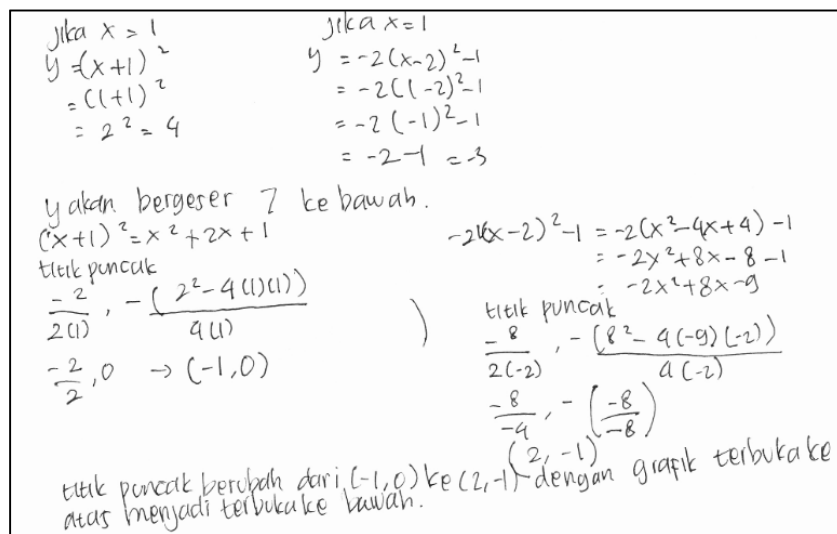 jika x = 1
y = (x+1)²
= (1+1)²
= 2² = 4
jika x = 1
y = -2(x-2)²-1
= -2(1-2)²-1
= -2(-1)²-1
= -2-1 = -3
y akan bergeser 7 ke bawah.
(x+1)² = x²+2x+1
titik puncak
-2/2(1), -(2²-4(1)(1))/4(1)
-2/2, 0 → (-1,0)
)
-2(x-2)²-1 = -2(x²-4x+4)-1
= -2x²+8x-8-1
= -2x²+8x-9
titik puncak
-8/2(-2), -(8²-4(-9)(-2))/4(-2)
-8/-4, -(-8/-8)
(2,-1)
titik puncak berubah dari (-1,0) ke (2,-1) dengan grafik terbuka ke
atas menjadi terbuka ke bawah.